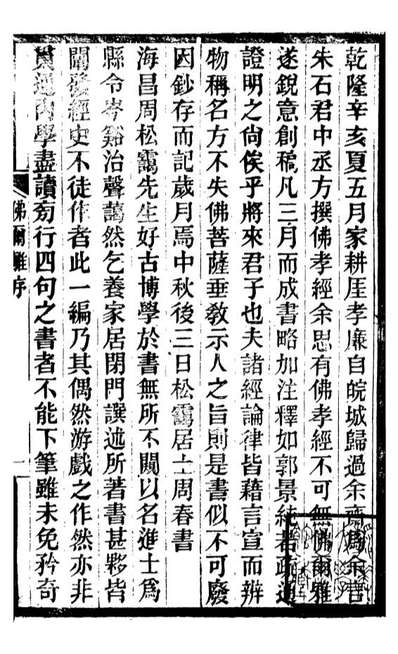 乾隆辛亥夏五月家耕厓孝廉自皖城歸過余齋爲余言
朱石君中丞方撰佛孝經余思有佛孝經不可無佛爾雅
遂銳意創稿凡三月而成書略加注釋如郭景純者疏通
證明之尙俟乎將來君子也夫諸經論律皆藉言宣而辨
物稱名方不失佛菩薩垂敎示人之旨則是書似不可廢
因鈔存而記歲月焉中秋後三日松靄居士周春書
海昌周松靄先生好古博學於書無所不闚以名進士爲
縣令岑谿治聲藹然乞養家居閉門譔述所著書甚夥皆
闡發經史不徒作者此一編乃其偶然游戲之作然亦非
貫通內學盡讀㫄行四句之書者不能下筆雖未免矜奇
佛爾雅序
一